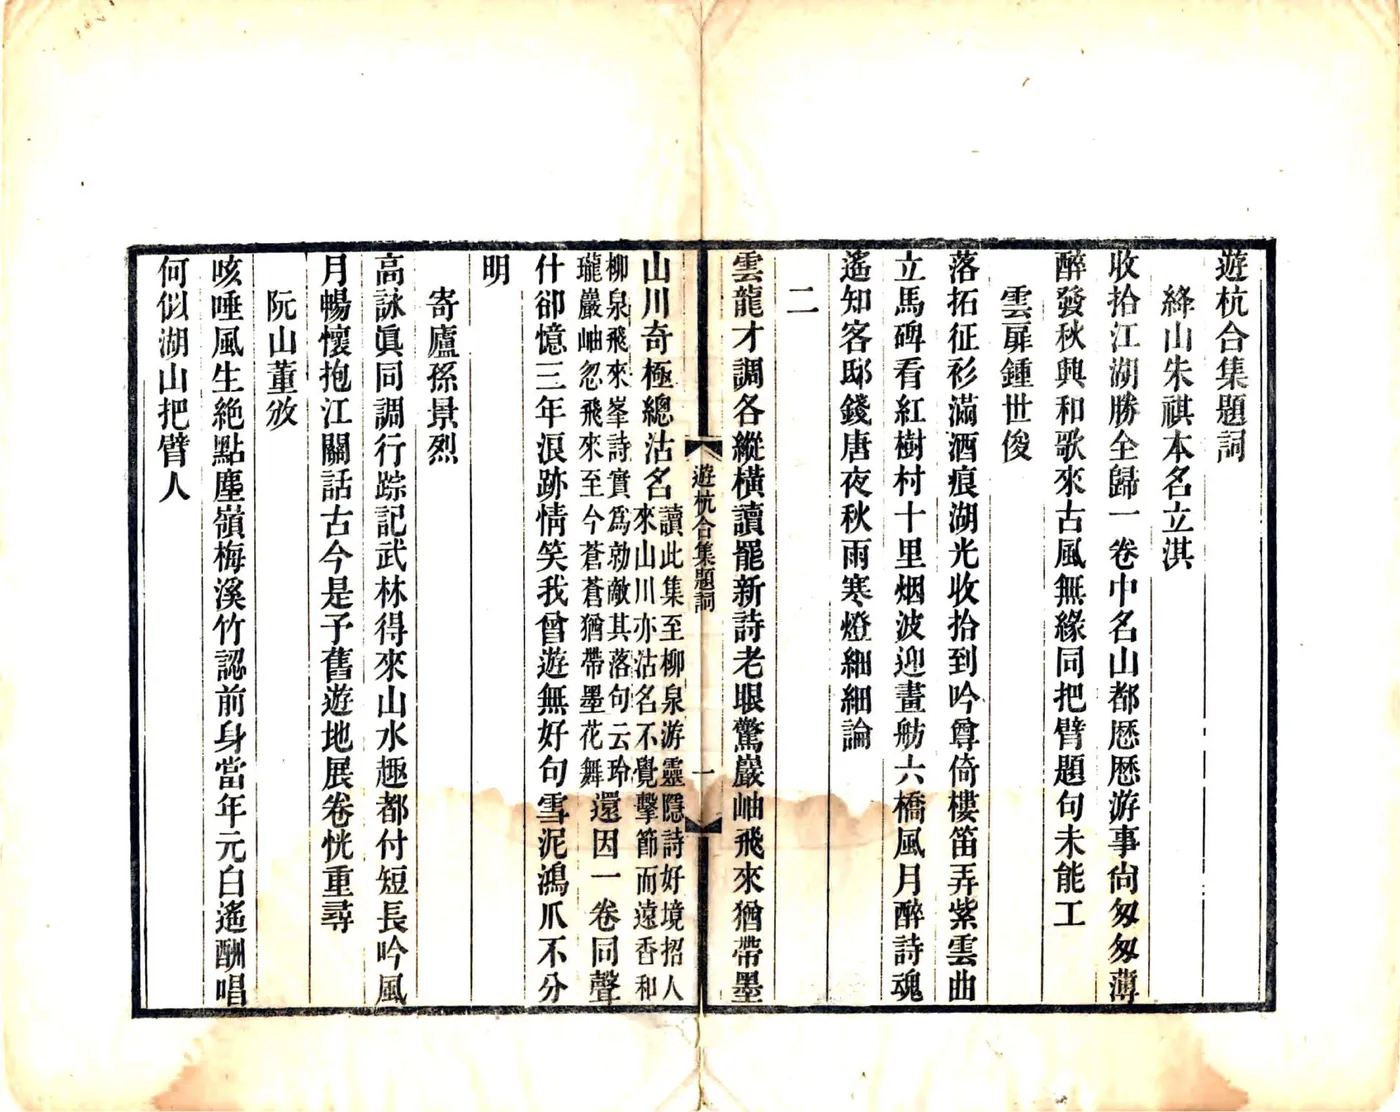 遊杭合集題詞
絳山朱祺本名立淇
收拾江湖勝全歸一卷中名山都歷歷游事尙匆匆薄
醉發秋興和歌來古風無緣同把臂題句未能工
雲扉鍾世俊
落拓征衫滿酒痕湖光收拾到吟尊倚樓笛弄紫雲曲
立馬碑看紅樹村十里烟波迎畫舫六橋風月醉詩魂
遙知客邸錢唐夜秋雨寒燈細細論
二
雲龍才調各縱橫讀罷新詩老眼驚巖岫飛來猶帶墨
遊杭合集題詞
一
山川奇極總沽名
讀此集至柳泉游靈隱詩好境招人
來山川亦沽名不覺擊節而遠香和
柳泉飛來峯詩實爲勍敵其落句云玲
瓏巖岫忽飛來至今蒼蒼猶帶墨花舞
還因一卷同聲
什卻憶三年浪跡情笑我曾遊無好句雪泥鴻爪不分
明
寄廬孫景烈
高詠眞同調行踪記武林得來山水趣都付短長吟風
月暢懷抱江關話古今是予舊遊地展卷恍重尋
阮山董攽
咳唾風生絶點塵嶺梅溪竹認前身當年元白遙酬唱
何似湖山把臂人